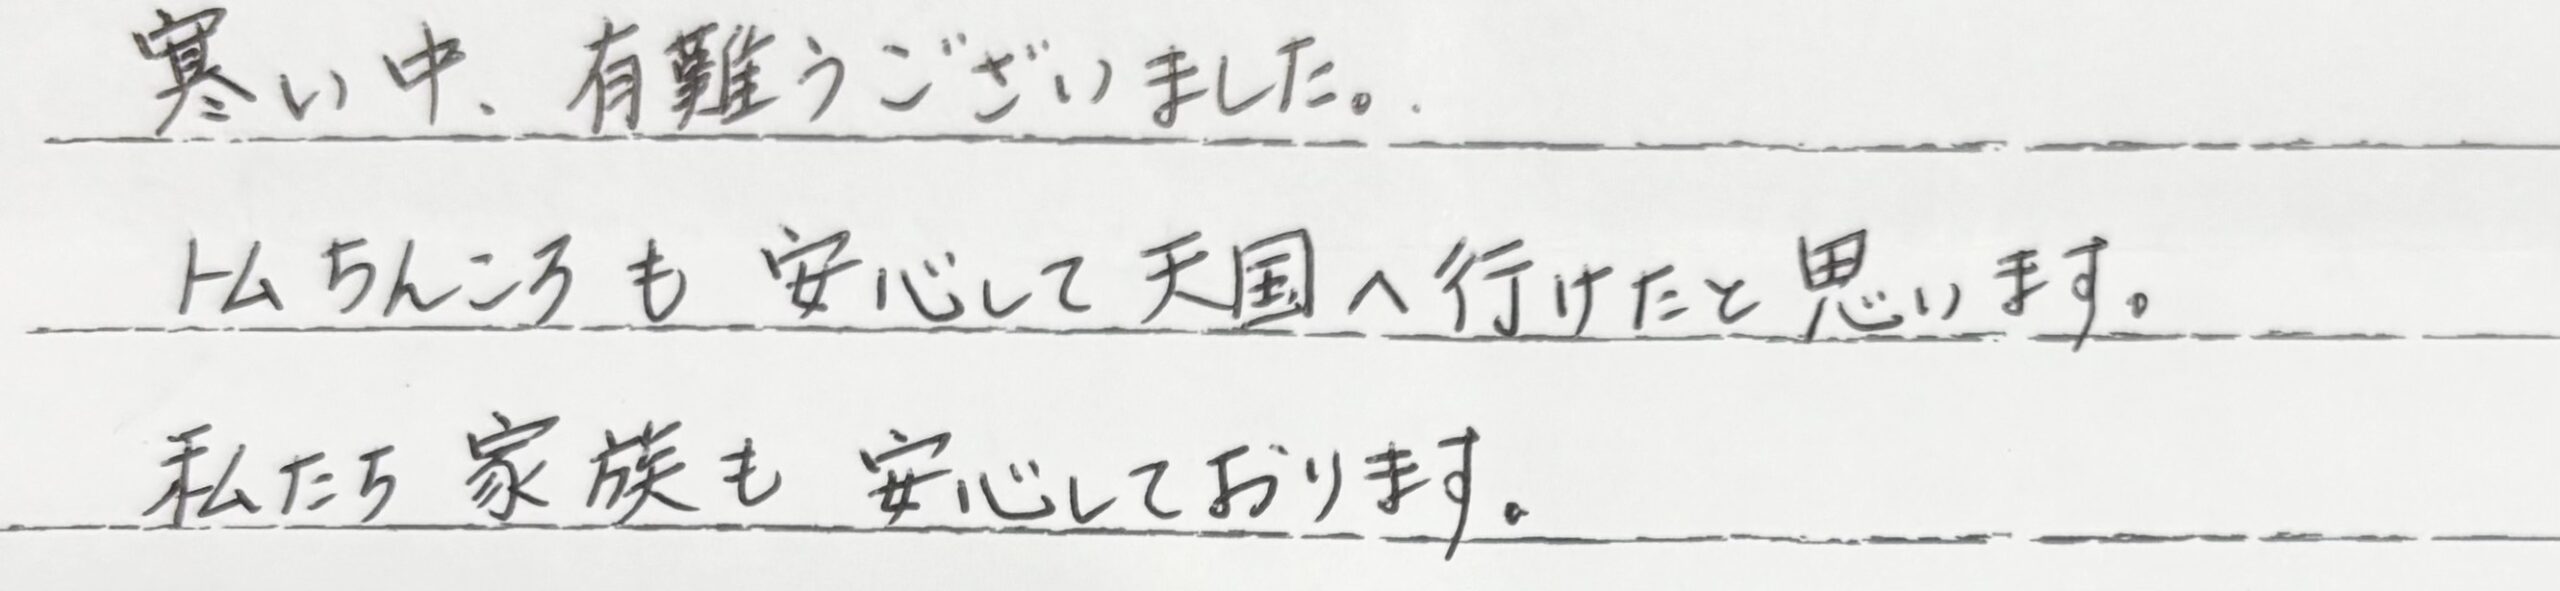 寒い中、有難うございました。
トムちんころも安心して天国へ行けたと思います。
私たち家族も安心しております。